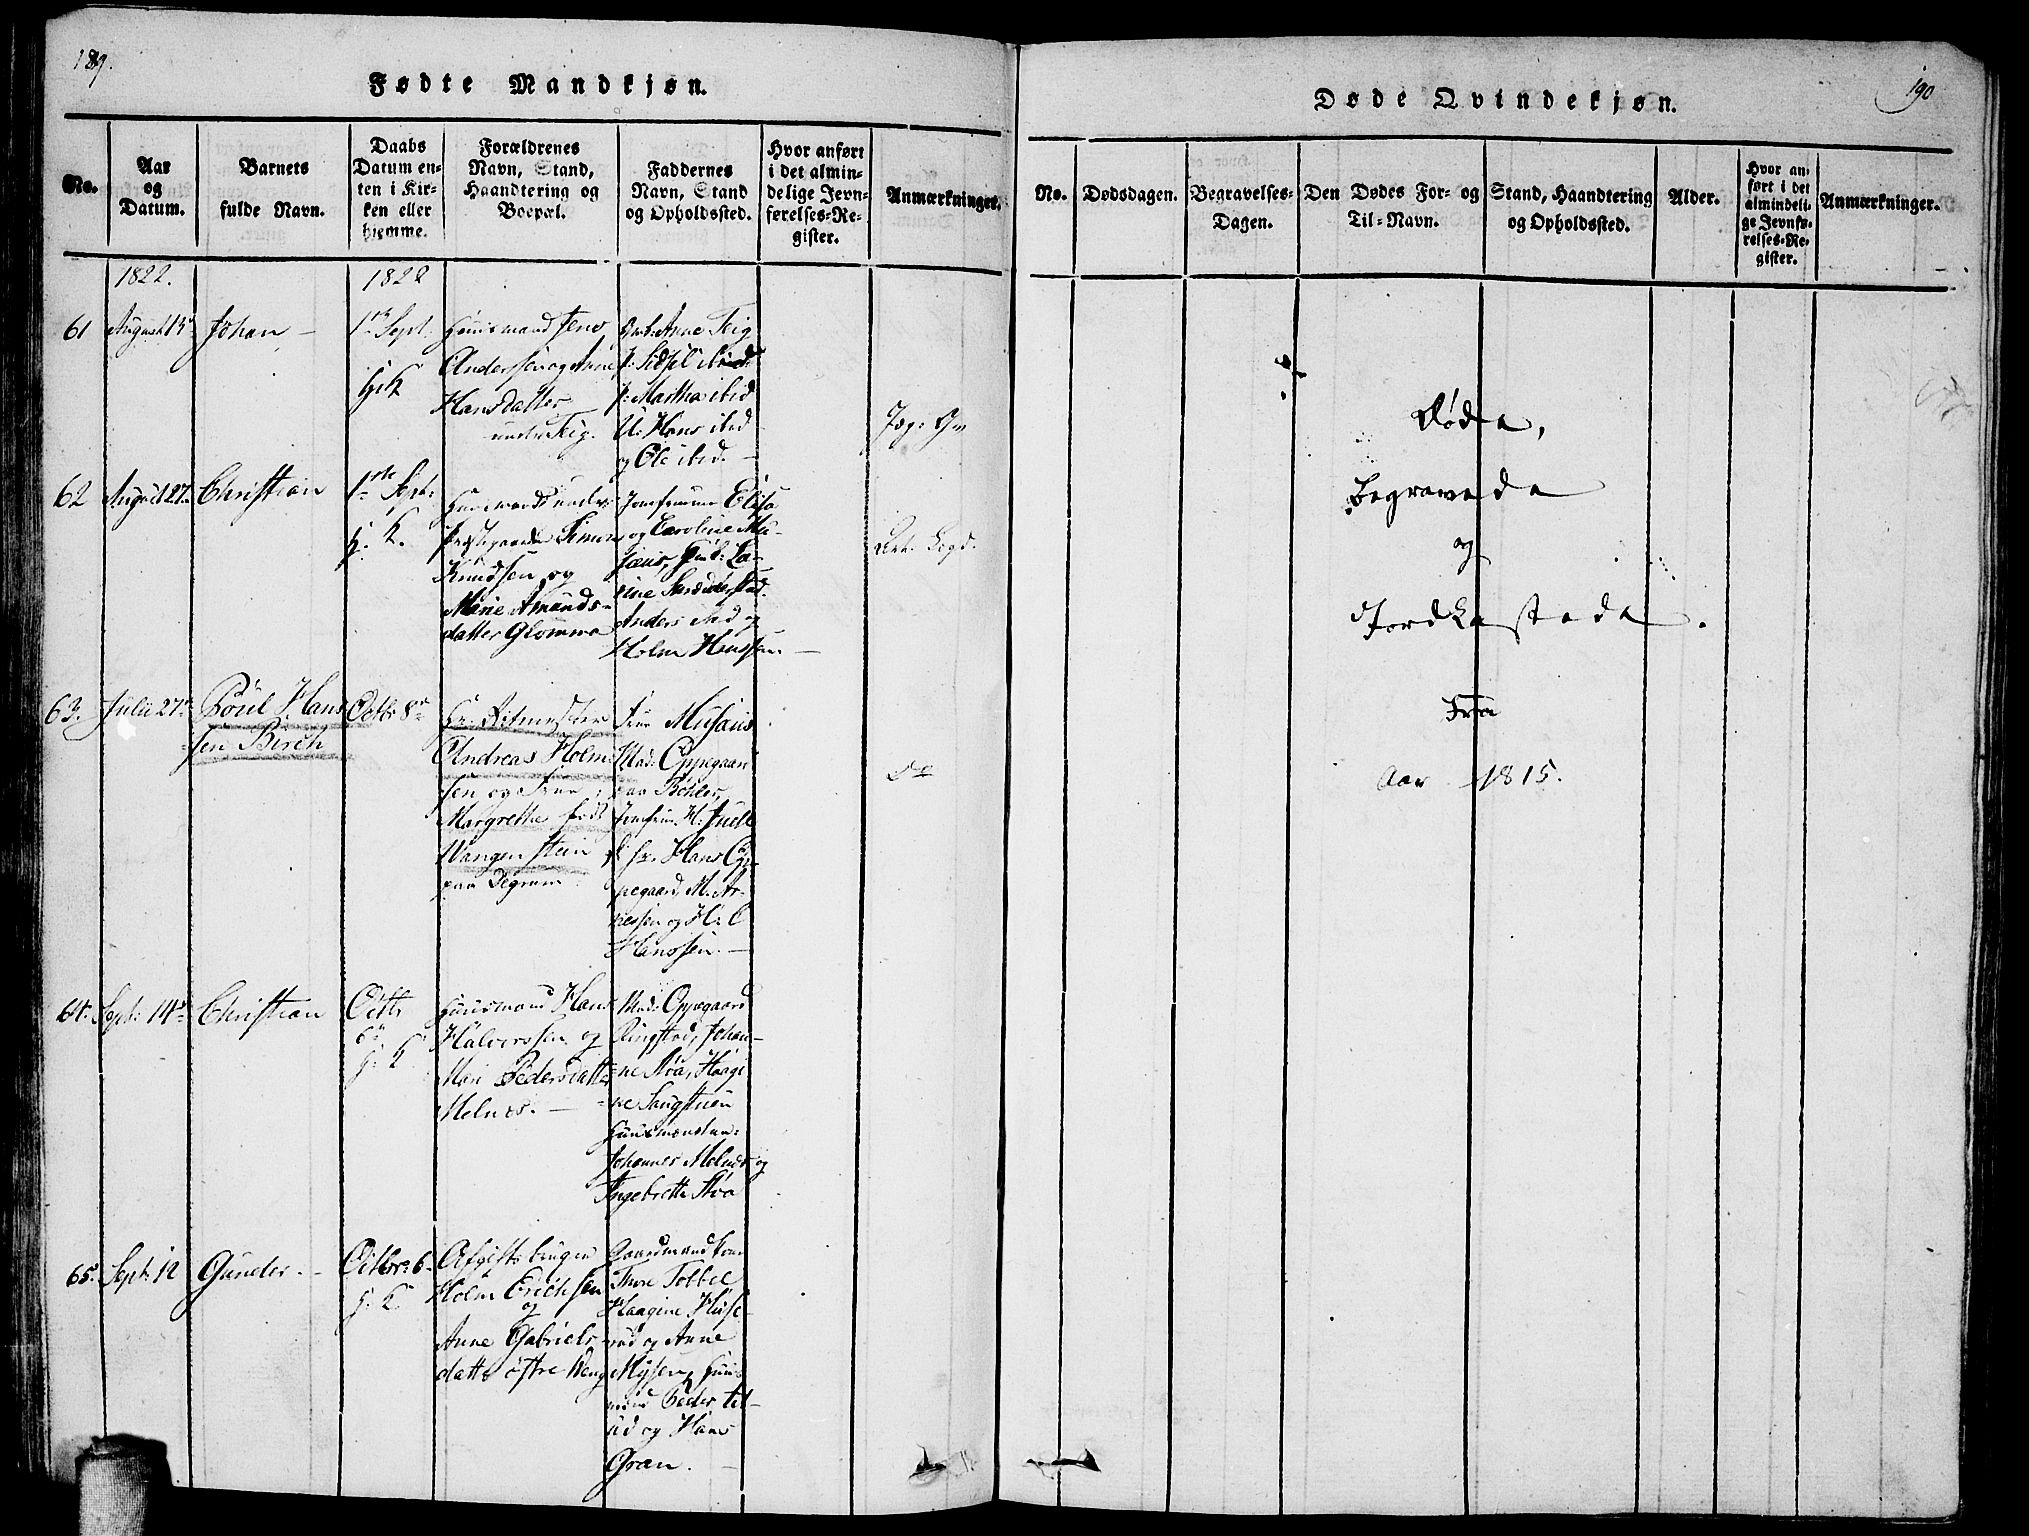 189.
Fødte Mandkjøn.
No.
Aar og Datum.
Barnets fulde Navn.
Daabs Datum enten i Kirken eller hjemme.
Forældrenes Navn, Stand, Haandtering og Boepæl.
Faddernes Navn, Stand og Opholdssted.
Hvor anført i det almindelige Jevnførelses-Register.
Anmærkninger.
1822.
1822
61
August 13
Johan
1 Sept.
H: K
Huusmand Jens
Anderssen og Anne
Hansdatter
under Teig.
Gmk: Anne Teig
P: Sidsel ibid
P: Martha ibid
U: Hans ibid
og Ole ibid.
62
August 27
Christian
1 Sept:
H. K.
Huusmand under
Præstegaarden Simen
Knudsen og
Marie Amunds-
datter Glomma
Jomfruerne Elisa
og Caroline Mu-
sæus,
Anders ibid og
Holm Hanssen.
63.
Julii 27
Poul Hans
sen Birch
Octbr 8
Hr. Ritmester
Andreas Holm
sen og Frue
Margrethe født
Wangensteen
paa
Frue Musæus
Mad: Oppegaard
paa Bøhler,
Jomfrue H. Juell
Hr. Hans Op-
pegaard, M. Ar-
nessen og H: C
Hanssen.
Do
64.
Sept: 14
Christian
Octbr
6
H: K
Huusmand Hans
Halvorssen og
Mari Pedersdatter
Melnes.
Mad: Oppegaard
Ringstad, Johan-
ne Moa, Haagi
ne Saugstuen
Huusmændene
Johannes Melnes og
Ingebrette Moa
65.
Sept: 12
Gunder.
Octbr: 6
H: K.
Afgiftsbruger
Holm Erichsen
og
Anne Gabriels-
datter østre Weng
Gaardmandkone
Thore Tobbel
Haagine Huse-
rud og Anne
Mysen, Huus
mænd Peder
ud og Hans
Gran.
190
Døde Qvindekjøn.
No.
Dødsdagen.
Begravelses-Dagen.
Den Dødes For- og Til-Navn.
Stand, Haandtering og Opholdssted.
Alder.
Hvor anført i det almindelige Jevnførelses-Register.
Anmærkninger.
Døde,
Begravede
og
Jordkastede.
Fra
Aar 1815.